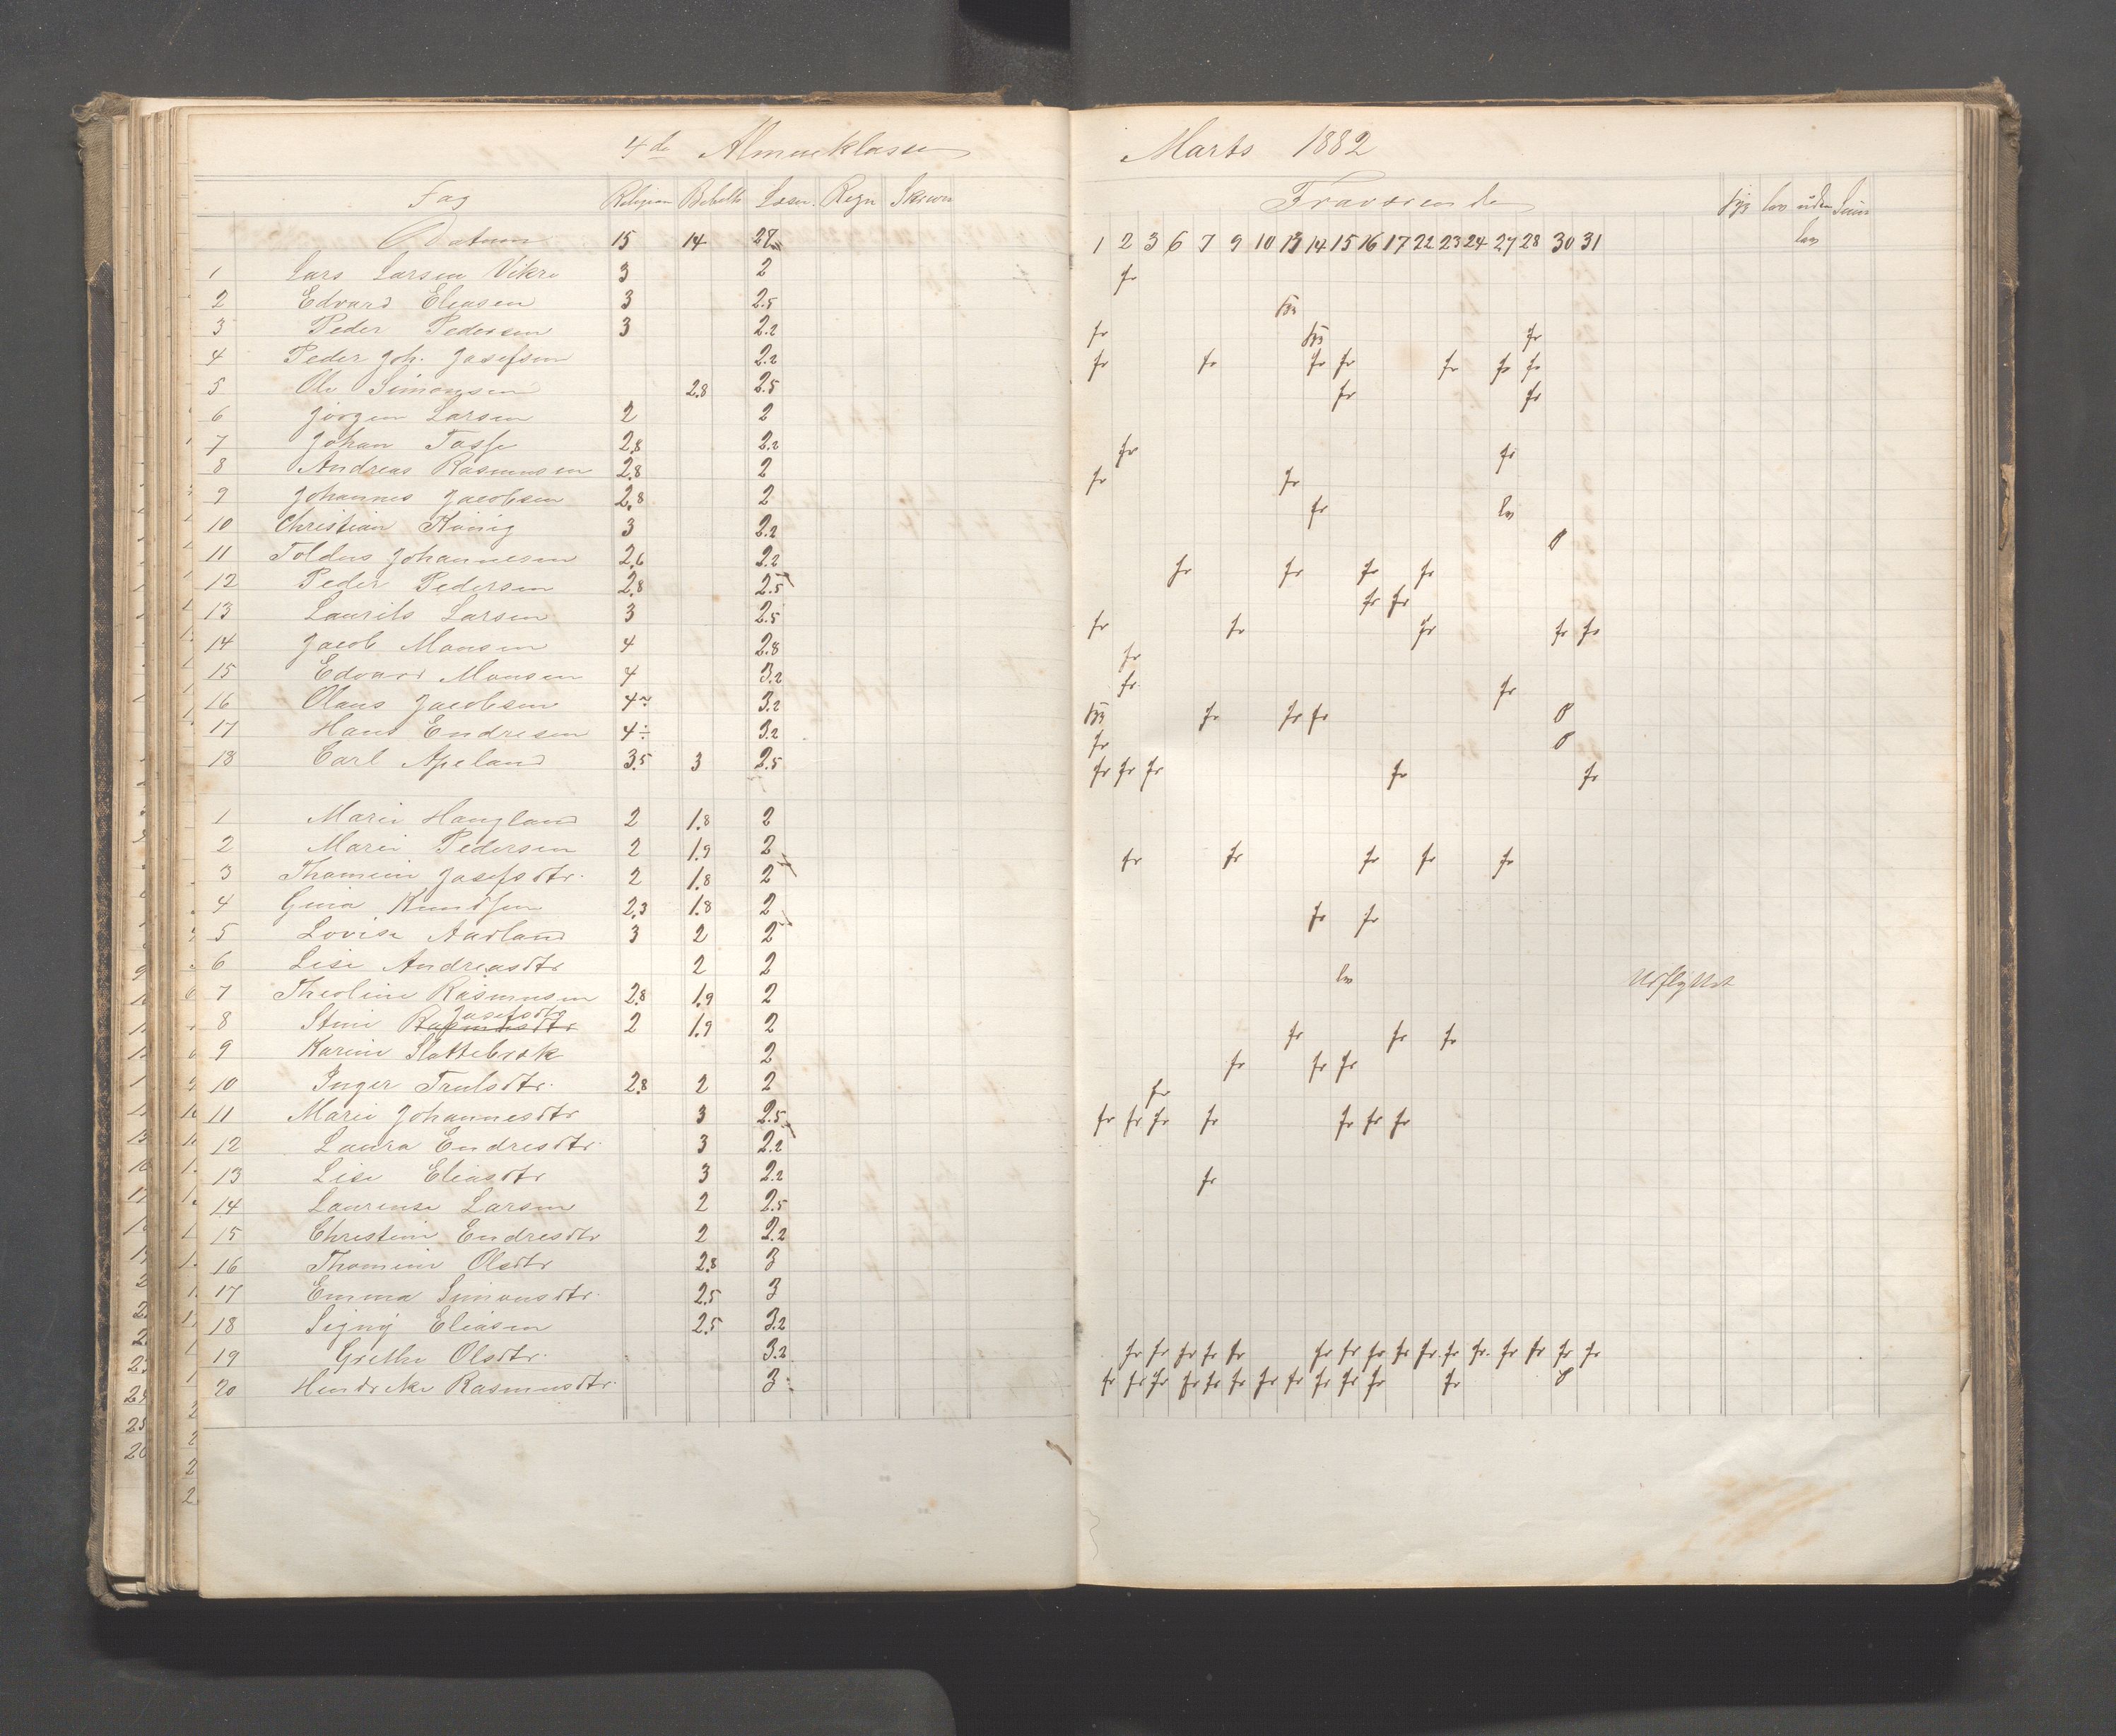 4de Almueklasse
Fag Religion Bibelh Læsn. Regn Skrivn
Datum 15 14 28
1 Lars Larsen Vikre 3 2
2 Edvard Eliasen 3 2.5
3 Peder Pedersen 3 2.2
4 Peder Joh. Josefsen 2.2
5 Ole Simonsen 2.8 2.5
6 Jørgen Larsen 2 2
7 Johan 2.8 2.2
8 Andreas Rasmussen 2.8 2
9 Johannes Jacobsen 2.8 2
10 Christian König 3 2.2
11 Johannesen 2.6 2.2
12 Peder Pedersen 2.8 2.5
13 Laurits Larsen 3 2.5
14 Jacob Monsen 4 2.8
15 Edvard Monsen 4 3.2
16 Olaus Jacobsen 4 3.2
17 Hans Endresen 4÷ 3.2
18 Carl Apeland 3.5 3 2.5
1 Marie Haugland 2 1.8 2
2 Marie Pedersen 2 1.9 2
3 Thomine Josefsdtr. 2 1.8 2
4 Gina Knudsen 2.3 1.8 2
5 Lovise Aarland 3 2 2
6 Lise Andreasdtr 2 2
7 Theoline Rasmussen 2.8 1.9 2
Josefsdtr
8 Stine Rasmusdtr 2 1.9 2
9 Karine Slottebræk 2
10 Inger Trulsdtr. 2.8 2 2
11 Marie Johannesdtr 3 2.5
12 Laura Endresdtr. 3 2.2
13 Lise Eliasdtr 3 2.2
14 Laurense Larsen 2 2.5
15 Christine Endresdtr 2 2.2
16 Thomine Olsdtr 2.8 3
17 Emma Simonsdtr. 2.5 3
18 Signy Eliasen 2.5 3.2
19 Grethe Olsdtr. 3.2
20 Hendrikke Rasmusdtr. 3
Marts 1882
Fraværende lov uden Sum
lov
1 2 3 6 7 9 10 13 14 15 16 17 22 23 24 27 28 30 31
fr
fr fr
fr fr fr fr fr fr fr
fr fr
fr fr
fr fr
fr lov
fr fr fr fr
fr fr
fr fr fr fr fr
fr
fr fr
fr fr fr
fr
fr fr fr fr fr
fr fr fr fr fr
fr fr
lov Udflyttet
fr fr fr
fr fr fr
fr
fr fr fr fr fr fr fr
fr
fr fr fr fr fr fr fr fr fr fr fr fr fr fr fr fr
fr fr fr fr fr fr fr fr fr fr fr fr